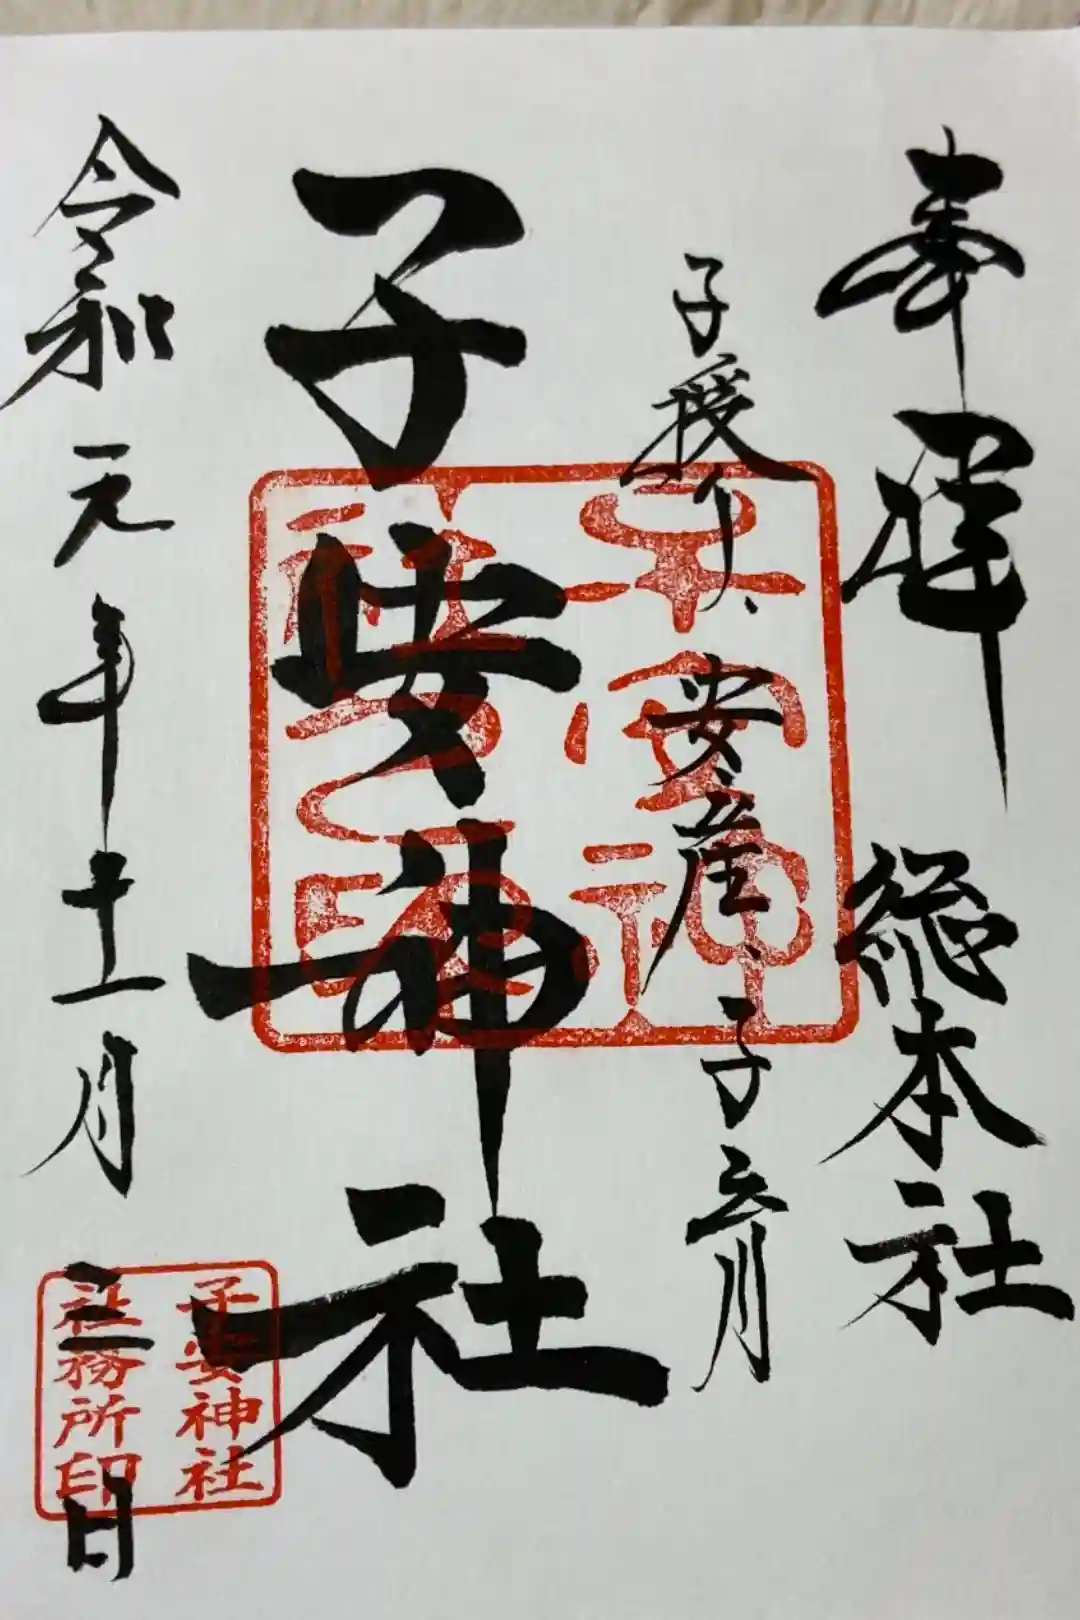 奉拝 総本社
子授り、安産、子育
子安神社
令和元年十一月三日
子安神
社之印
子安神社
社務所印